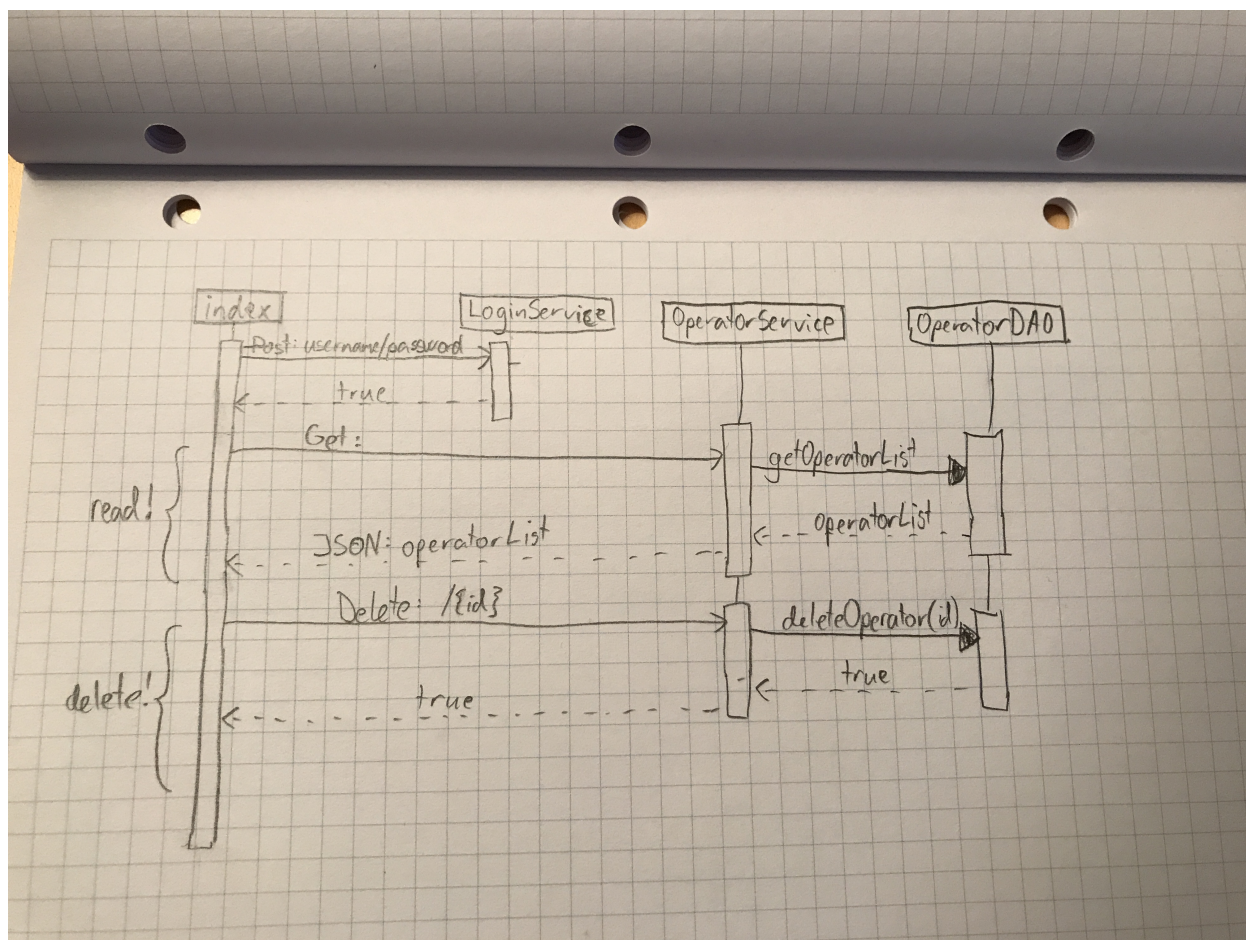 index
LoginService
OperatorService
OperatorDAO
Post: username/password
true
Get:
getOperatorList
read!
operatorList
JSON: operatorList
Delete: /{id}
deleteOperator(id)
delete!
true
true